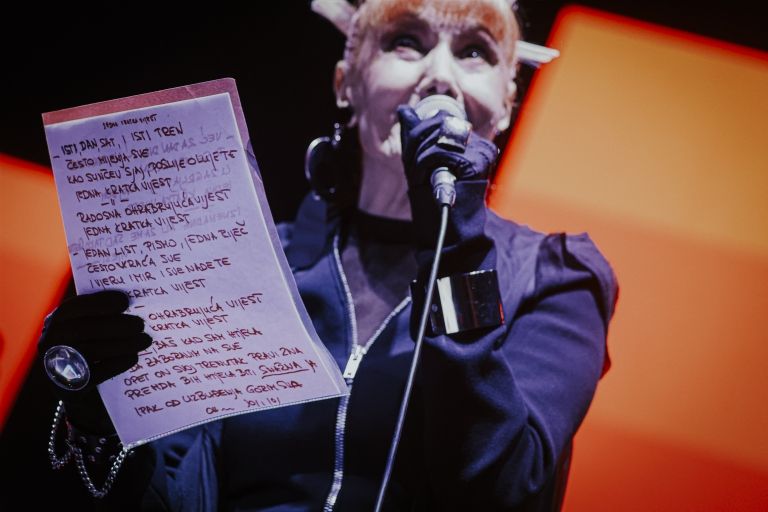 JEDNA KRATKA VIJEST
- ISTI DAN, SAT, I ISTI TREN
ČESTO MIJENJA SVE
KAO SUNČEV SJAJ, POSLIJE OLUJE TE
JEDNA KRATKA VIJEST
- || -
RADOSNA OHRABRUJUĆA VIJEST
JEDNA KRATKA VIJEST
- JEDAN LIST, PISMO, I JEDNA RIJEČ
ČESTO VRAĆA SVE
I VJERU I MIR I SVE NADE TE
KRATKA VIJEST
- OHRABRUJUĆA VIJEST
KRATKA VIJEST
- BAŠ KAD SAM HTJELA
DA ZABORAVIM NA SVE
OPET ON SVOJ TRENUTAK PRAVI ZNA
PREMDA BIH HTJELA BITI SNAŽNA JA
IPAK OD UZBUĐENJA GORIM SVA